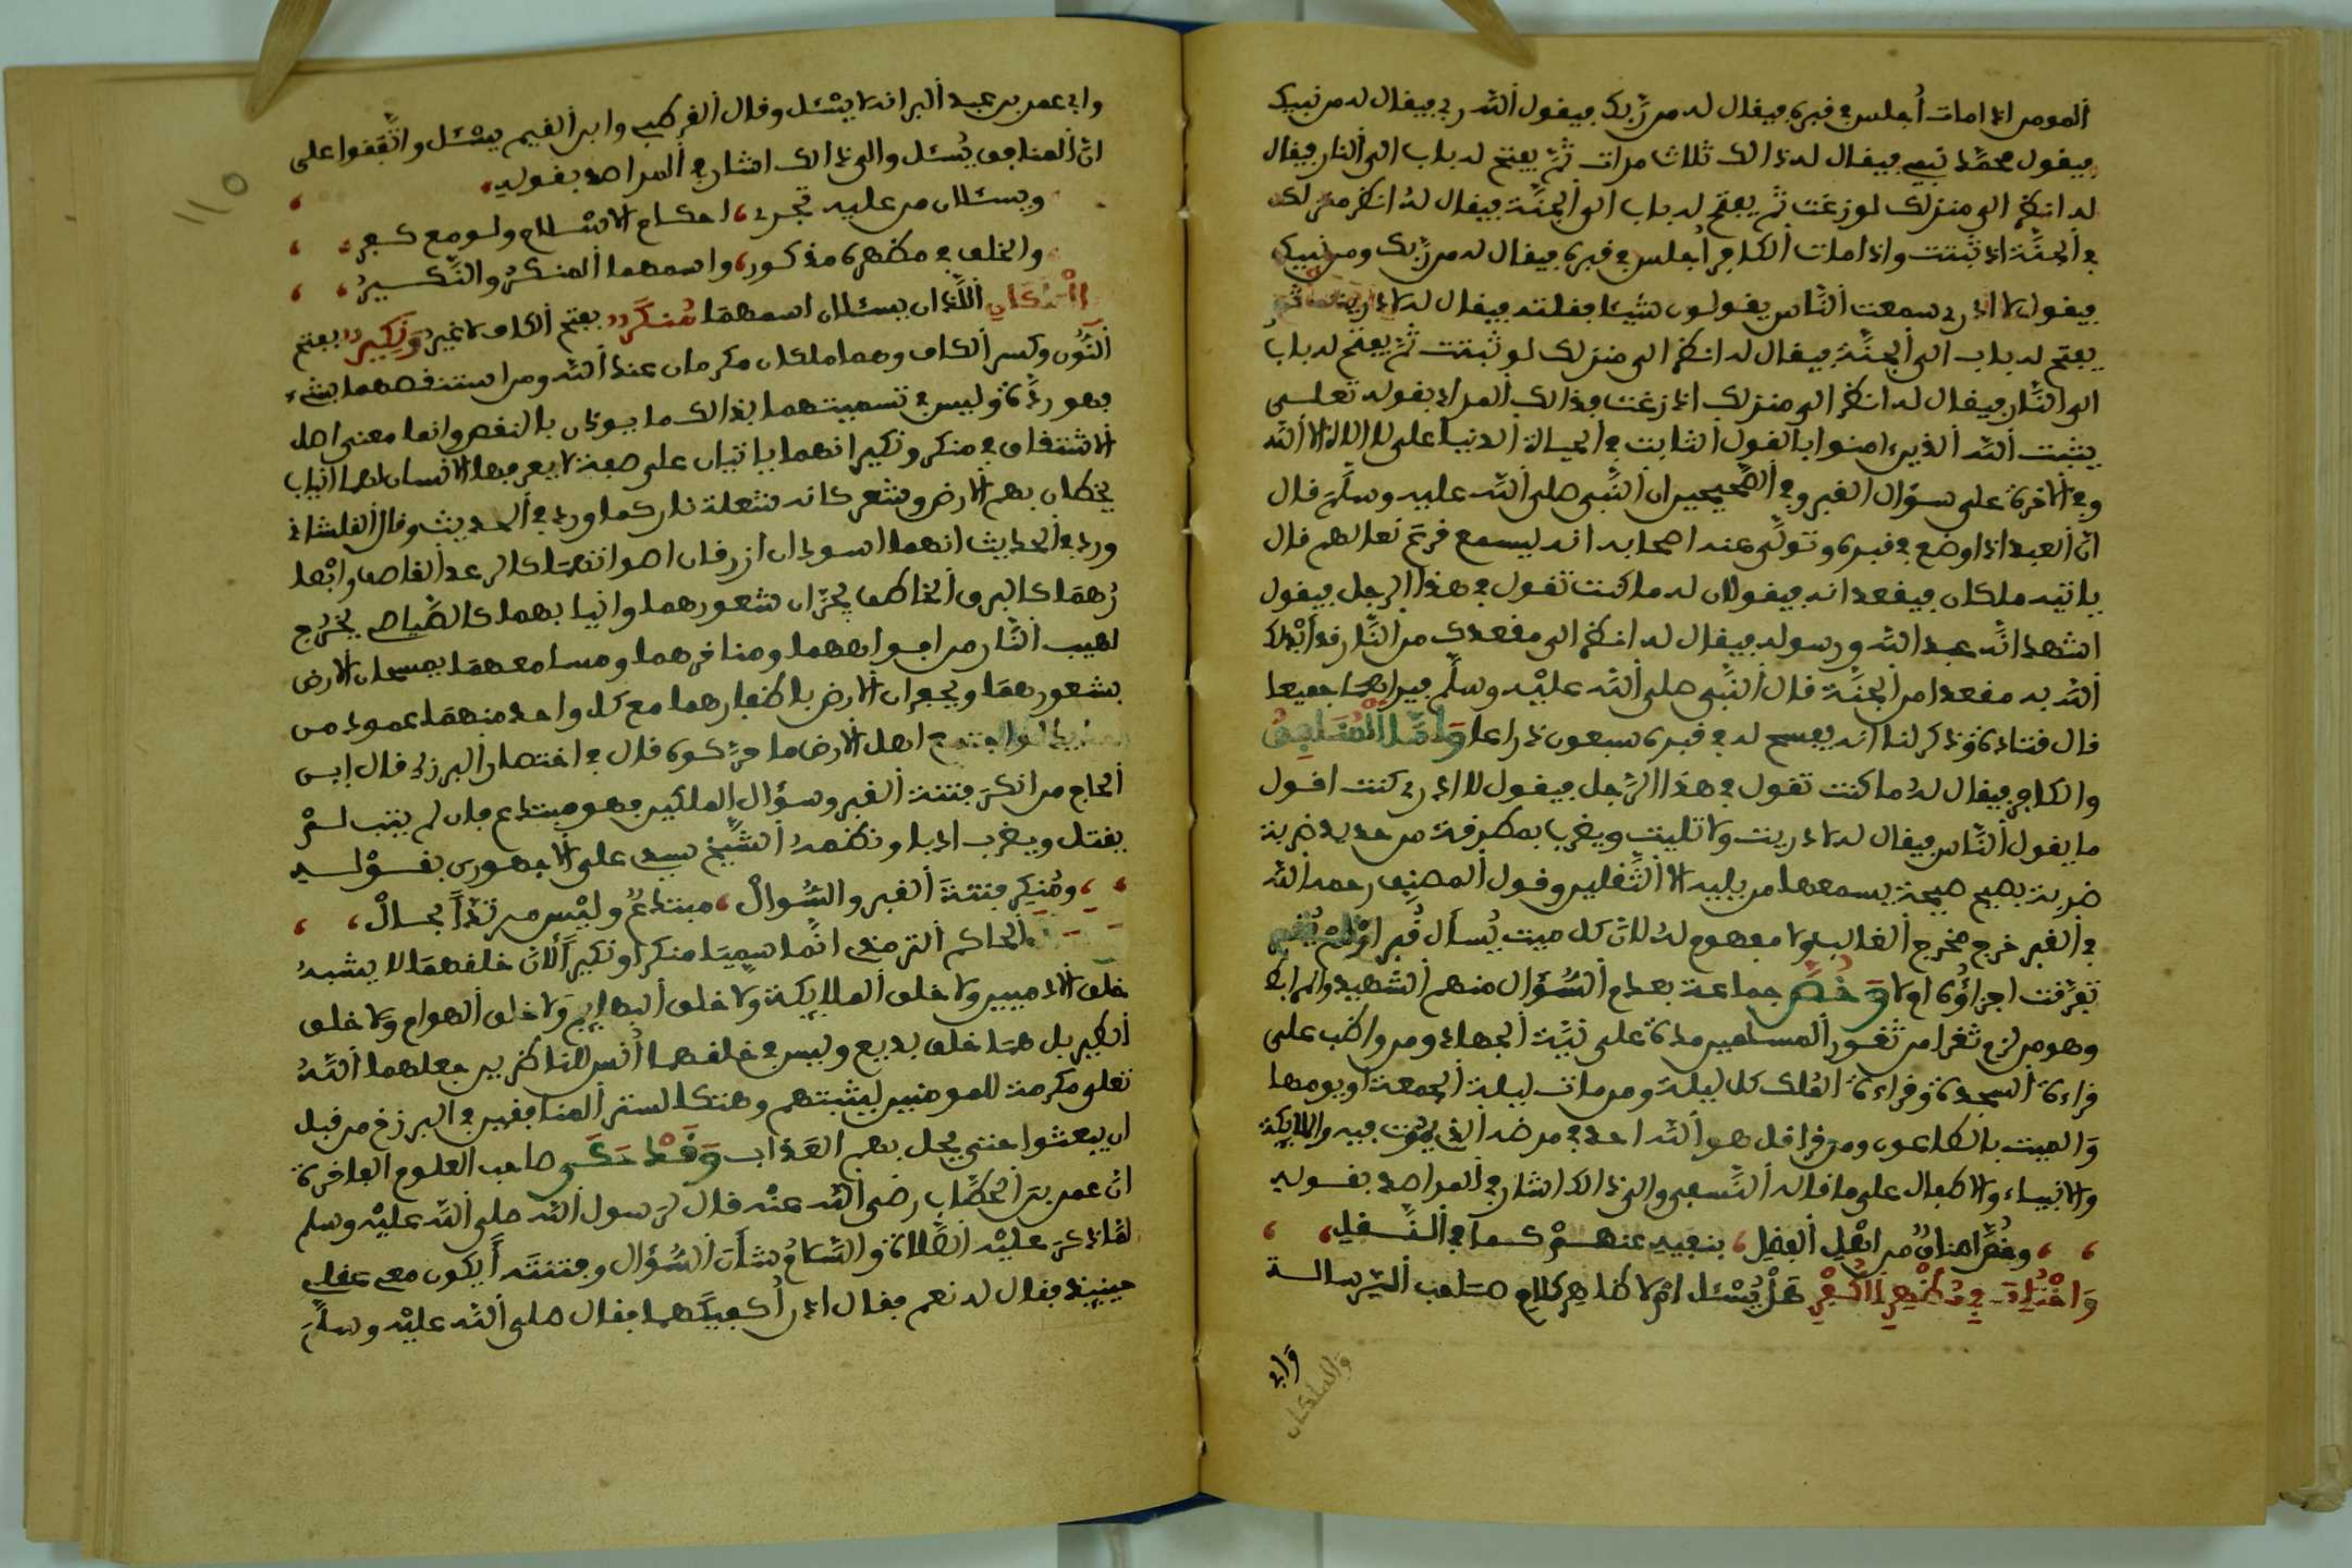 المومن اذا مات أجلس في قبره فيقال له من ربك فيقول الله ربي فيقال له من نبيك
فيقول محمد نبيي فيقال له ذالك ثلاث مرات ثم يفتح له باب الى النار فيقال
له انظر الى منزلك لو زغت ثم يفتح له باب الى الجنة فيقال له انظر منزلك
في الجنة اذ ثبتت واذا مات الكافر أجلس في قبره فيقال له من ربك ومن نبيك
فيقول لا ادري سمعت الناس يقولون شيئا فقلته فيقال له لا دريت ثم
يفتح له باب الى الجنة فيقال له انظر الى منزلك لو ثبتت ثم يفتح له باب
الى النار فيقال له انظر الى منزلك اذ زغت فذالك المراد بقوله تعلى
يثبت الله الذين ءامنوا بالقول الثابت في الحياة الدنيا على لا اله الا الله
وفي الاخرة على سؤال القبر وفي الصحيحين ان النبي صلى الله عليه وسلم قال
ان العبد اذا وضع في قبره وتولى عنه اصحابه انه ليسمع قرع نعالهم قال
ياتيه ملكان فيقعدانه فيقولان له ما كنت تقول في هذا الرجل فيقول
اشهد انه عبد الله ورسوله فيقال له انظر الى مقعدك من النار قد أبدلك
الله به مقعدا من الجنة قال النبي صلى الله عليه وسلم فيراهما جميعا
قال قتادة وذكر لنا انه يفسح له في قبره سبعون ذراعا وأما المنافق
والكافر فيقال له ما كنت تقول في هذا الرجل فيقول لا ادري كنت اقول
ما يقول الناس فيقال له لا دريت ولا تليت ويضرب بمطرقة من حديد ضربة
ضربة يصيح صيحة يسمعها من يليه الا الثقلين وقول المصنف رحمه الله
في القبر خرج مخرج الغالب ولا مفهوم له لان كل ميت يسأل قبر او لم يقبر
تفرقت اجزاؤه اولا وخص جماعة بعدم السؤال منهم الشهيد والمرابط
وهو من لزم ثغرا من ثغور المسلمين مدة على نية الجهاد ومن واظب على
قراءة السجدة وقراءة الملك كل ليلة ومن مات ليلة الجمعة او يومها
والميت بالطاعون ومن قرا قل هو الله احد في مرضه الذي يموت فيه والملايكة
والانبياء والاطفال على ما قاله النسفي والى ذالك اشار في المراصد بقوله
وخص اصناف من اهل الفضل، بنفيه عنهم كما في النقل
واختلف في مظهر الكفر هل يسئل ام لا ظاهر كلام صاحب الرسالة
وابي
والملكان
110
وابي عمر بن عبد البر انه لا يسئل وقال القرطبي وابن القيم يسئل واتفقوا على
ان المنافق يسئل والى ذالك اشار في المراصد بقوله
ويسئلان من عليه تجري، احكام الاسلام ولو مع كفر
والخلف في مظهره مذكور، واسمهما المنكر والنكير
اللذان يسئلان اسمهما منكر بفتح الكاف لا غير ونكير بفتح
النون وكسر الكاف وهما ملكان مكرمان عند الله ومن استنقصهما بشيء
فهو ردة وليس في تسميتهما بذالك ما يوذن بالنقص وانما معنى اهل
الاشتقاق في منكر ونكير انهما ياتيان على صفة لا يعرفها الانسان لهما انياب
يخطان بهم الارض وشعر كانه شعلة نار كما ورد في الحديث وقال القلشاني
ورد في الحديث انهما اسودان ازرقان اصواتهما كالرعد القاصف وابصا
رهما كالبرق الخاطف يجران شعورهما وانيابهما كالصياصي يخرج
لهيب النار من افواههما ومناخرهما ومسامعهما يمسحان الارض
بشعورهما ويحفران الارض باظفارهما مع كل واحد منهما عمود من
حديد لو اجتمع اهل الارض ما حركوه قال في اختصار البرزلي قال ابن
الحاج من انكر فتنة القبر وسؤال الملكين فهو مبتدع فان لم يتب لم
يقتل ويضرب ادبا ونظمه الشيخ سيدي علي الاجهوري بقوله
ومنكر فتنة القبر والسؤال، مبتدع وليس مرتدا بحال
الحاكم الترمذي انما سميا منكرا ونكيرا لان خلقهما لا يشبه
خلق الادميين ولا خلق الملايكة ولا خلق البهايم ولا خلق الهوام ولا خلق
الطير بل هما خلق بديع وليس في خلقهما انس للناظرين جعلهما الله
تعلى مكرمة للمومنين ليثبتهم وهتكا لستر المنافقين في البرزخ من قبل
ان يبعثوا حتى يحل بهم العذاب وقد حكى صاحب العلوم الفاخرة
ان عمر بن الخطاب رضي الله عنه قال لرسول الله صلى الله عليه وسلم
لما ذكر عليه الصلاة والسلام شأن السؤال وفتنته أيكون معي عقلي
حينيذ فقال له نعم فقال اذن أكفيكهما فقال صلى الله عليه وسلم